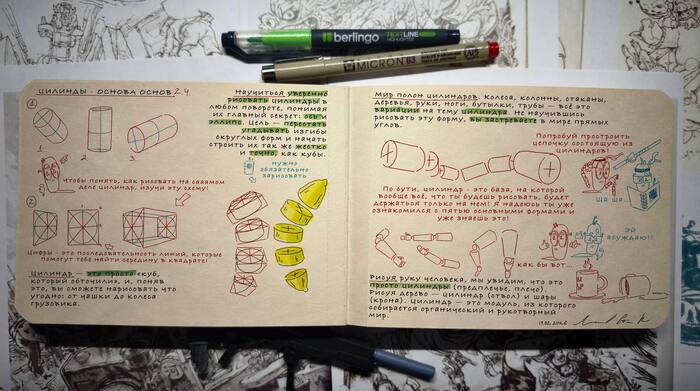 berlingo TEXTLINE
HIGHLIGHTER
MICRON 03
ЦИЛИНДЫ - ОСНОВА ОСНОВ 2.4
1
1.
2.
3.
Чтобы понять, как рисовать на самом
деле цилиндр, изучи эту схему!
2
Цифры - это последовательность линий, которые
помогут тебе найти середину в квадрате!
Цилиндр — это просто «куб,
который обточили», и, поняв
это, вы сможете нарисовать что
угодно: от чашки до колеса
грузовика.
Научиться уверенно
рисовать цилиндры в
любом повороте, понимая
их главный секрет: ось и
эллипс. Цель — перестать
угадывать изгибы
округлых форм и начать
строить их так же жестко
и точно, как кубы.
нужно
обязательно
зарисовать
Мир полон цилиндров. Колеса, колонны, стаканы,
деревья, руки, ноги, бутылки, трубы — всё это
вариации на тему цилиндра. Не научившись
рисовать эту форму, вы застреваете в мире прямых
углов.
Попробуй простроить
цепочку состоящую из
цилиндров!
ща ща...
По сути, цилиндр - это база, на которой
вообще всё, что ты будешь рисовать, будет
держаться только на нем! Я надеюсь ты уже
ознакомился с пятью основными формами и
уже знаешь это!
эй
абуждаю!!
как бы вот...
Рисуя руку человека, мы увидим, что это
просто цилиндры (предплечье, плечо).
Рисуя дерево — цилиндр (ствол) и шары
(крона). Цилиндр — это модуль, из которого
собирается органический и рукотворный
мир.